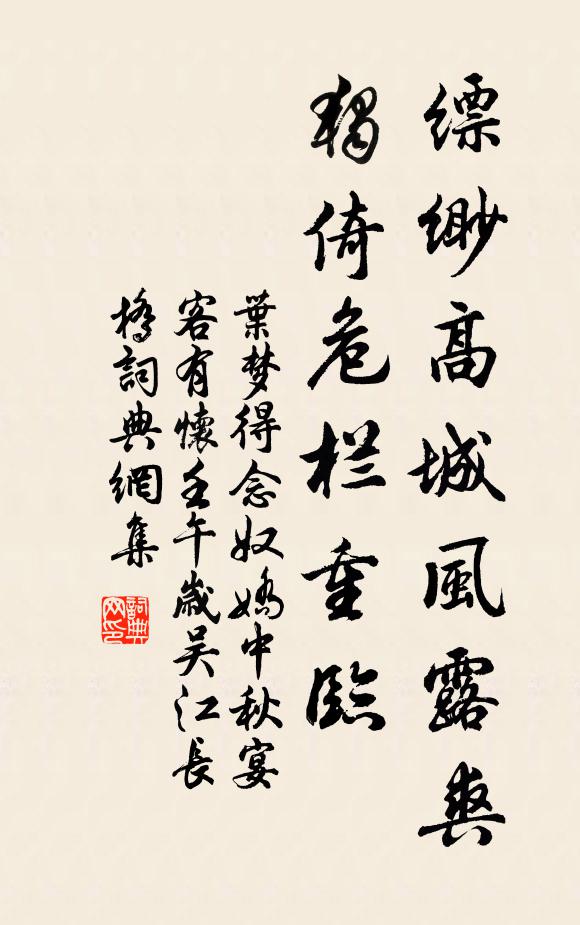 缥缈高城風露爽
獨倚危栏重臨
葉梦得念奴嬌中秋宴
客有懷壬午歲吴江長
橋詞典網集
詞典网印